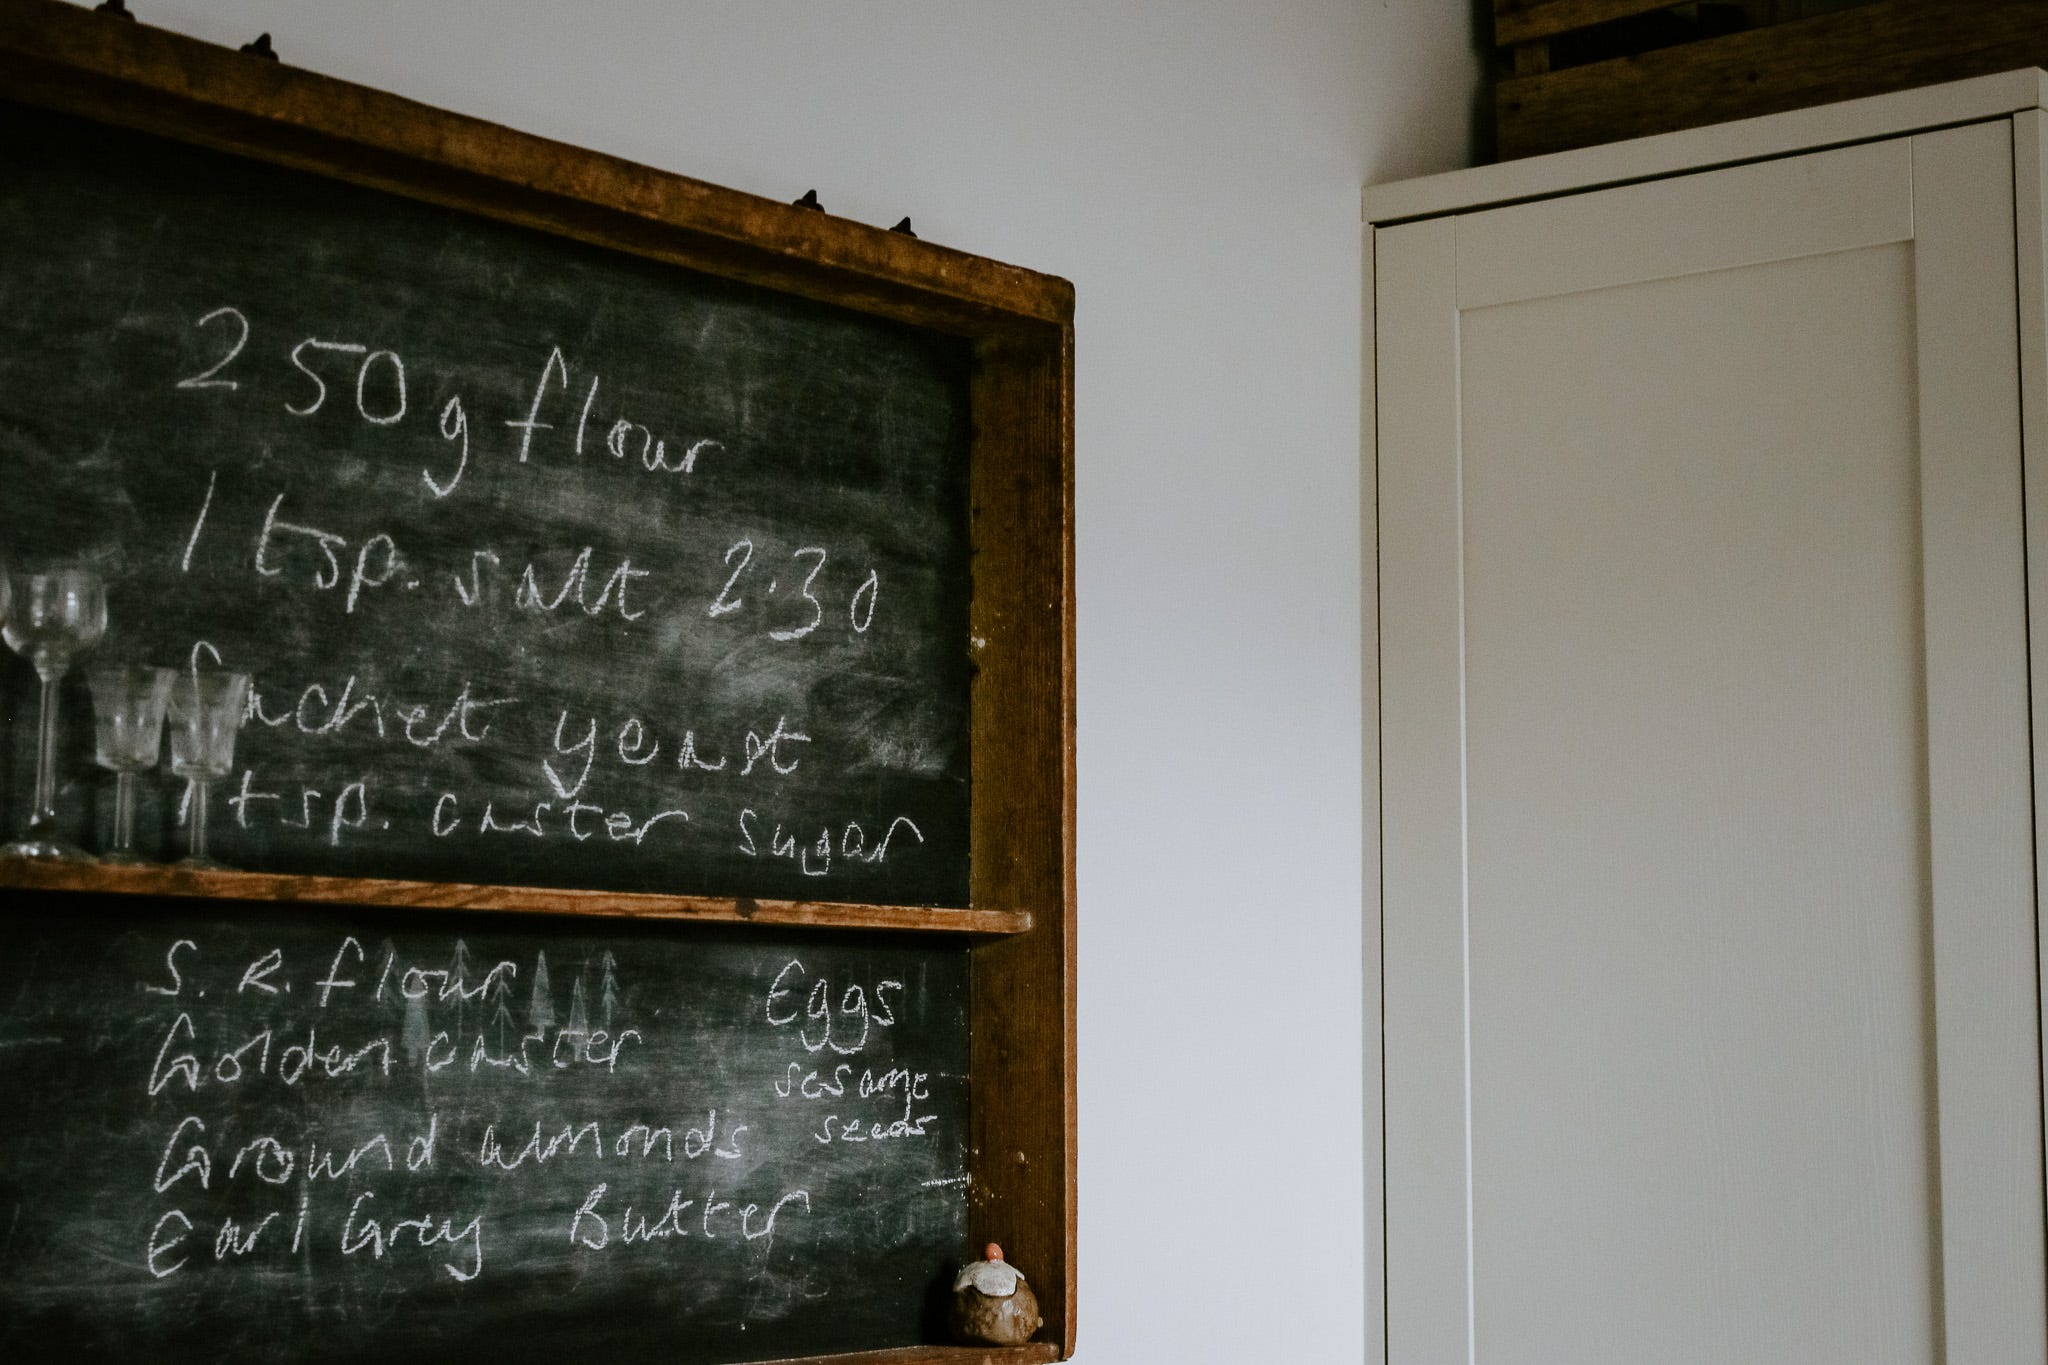 250g flour
1 tsp. salt 2.30
Sachet yeast
1 tsp. caster sugar
S. R. flour
Golden caster
Ground almonds
Earl Grey Butter
Eggs
sesame
seeds